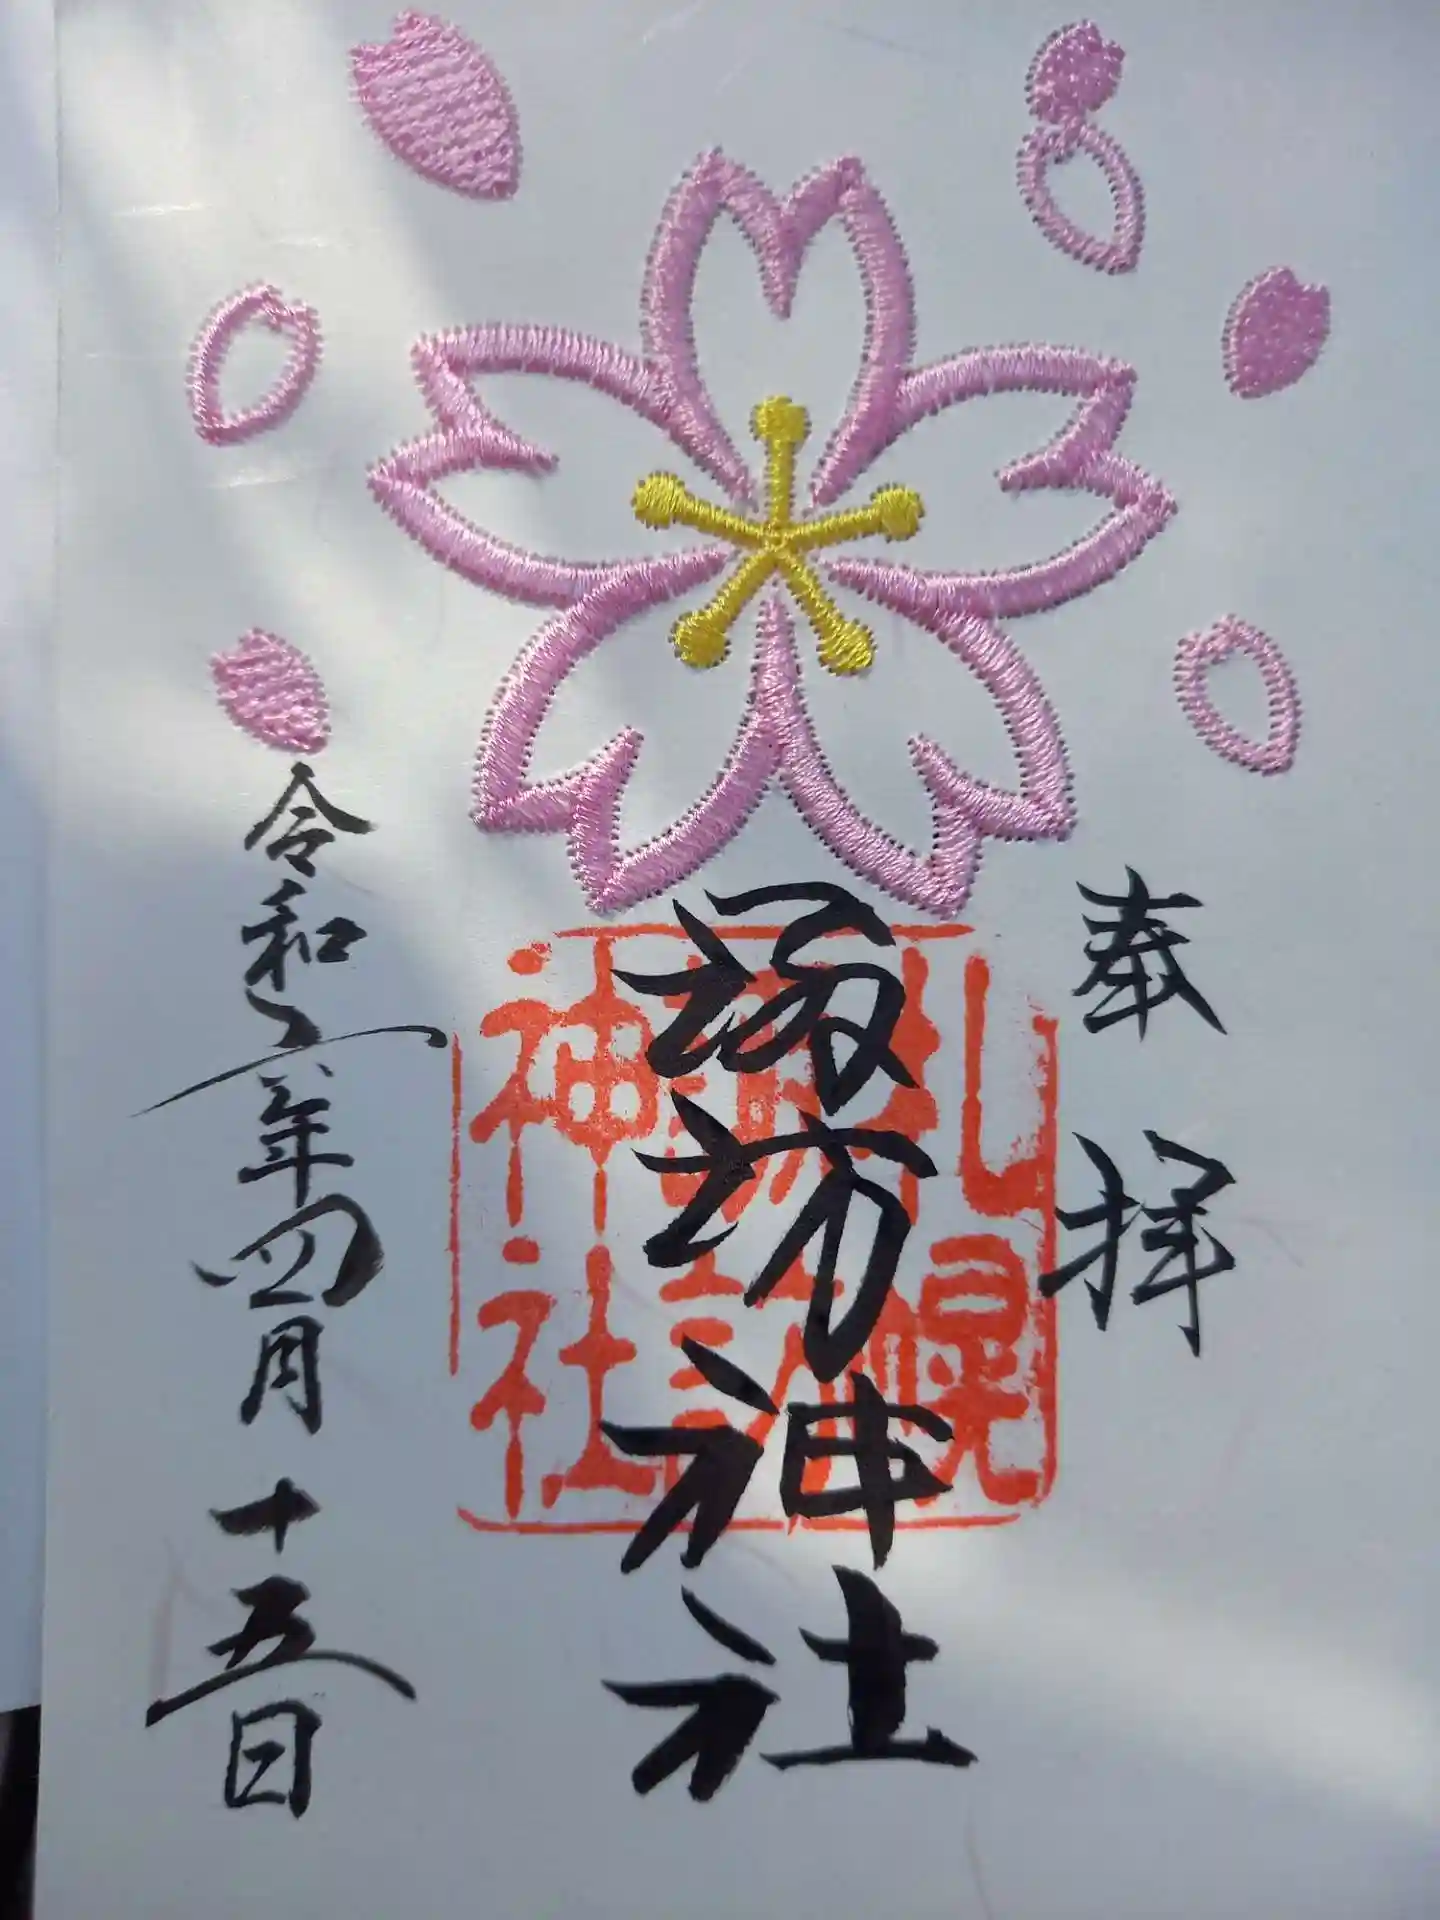 奉拝
諏訪神社
令和六年四月十五日
札幌
諏訪
神社